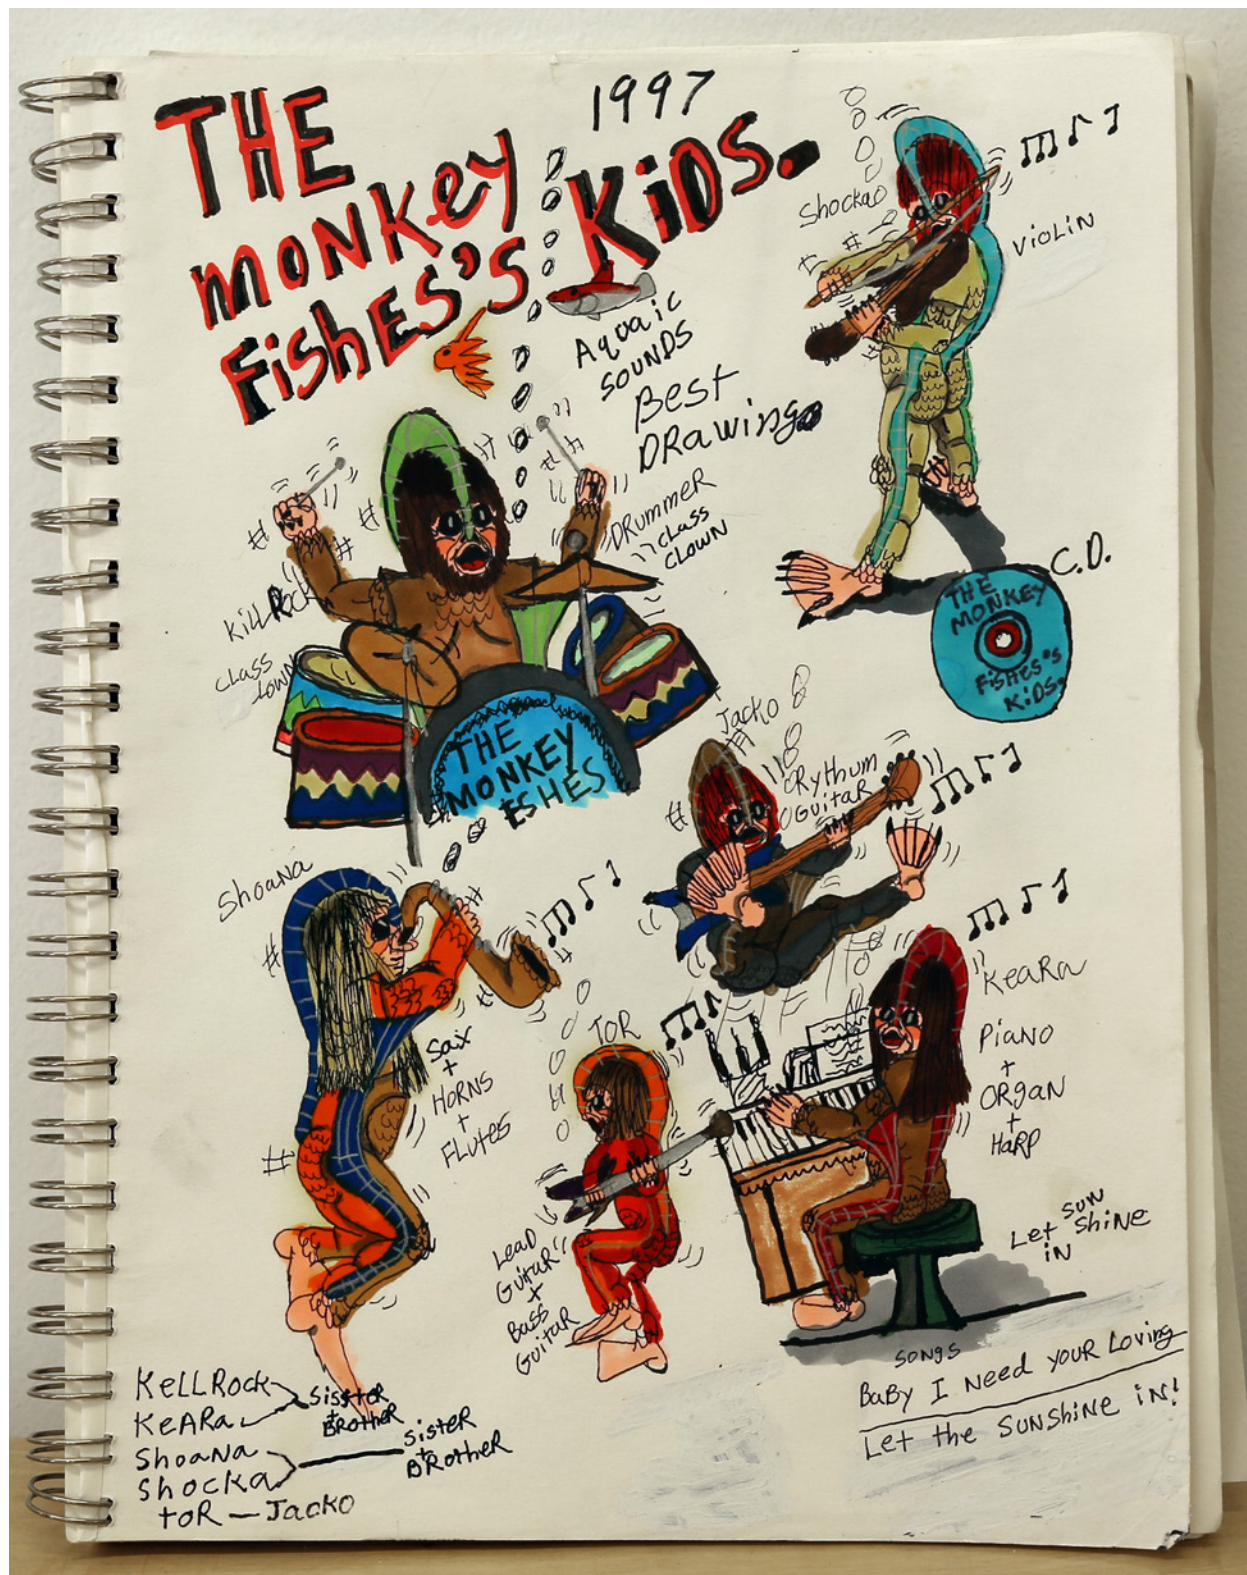 THE
MONKEY
FISHES'S KIDS.
1997
Aquaic
SOUNDS
BEST
DRAWING
Shockao
VIOLIN
DRUMMER
CLASS
CLOWN
KILLROCK
CLASS
LOWN
THE
MONKEY
FISHES
C.D.
THE
MONKEY
FISHES'S
KIDS.
JACKO
RYTHUM
GUITAR
SHOANA
SAX
+
HORNS
+
FLUTES
TOR
LEAD
GUITAR
+
BASS
GUITAR
KEARA
PIANO
+
ORGAN
+
HARP
LET SUN SHINE
IN
SONGS
BABY I NEED YOUR LOVING
LET the SUNSHINE IN!
KELLROCK
KEARA
SISSTER
+
BROTHER
SHOANA
SHOCKA
SISTER
+
BROTHER
TOR — JACKO